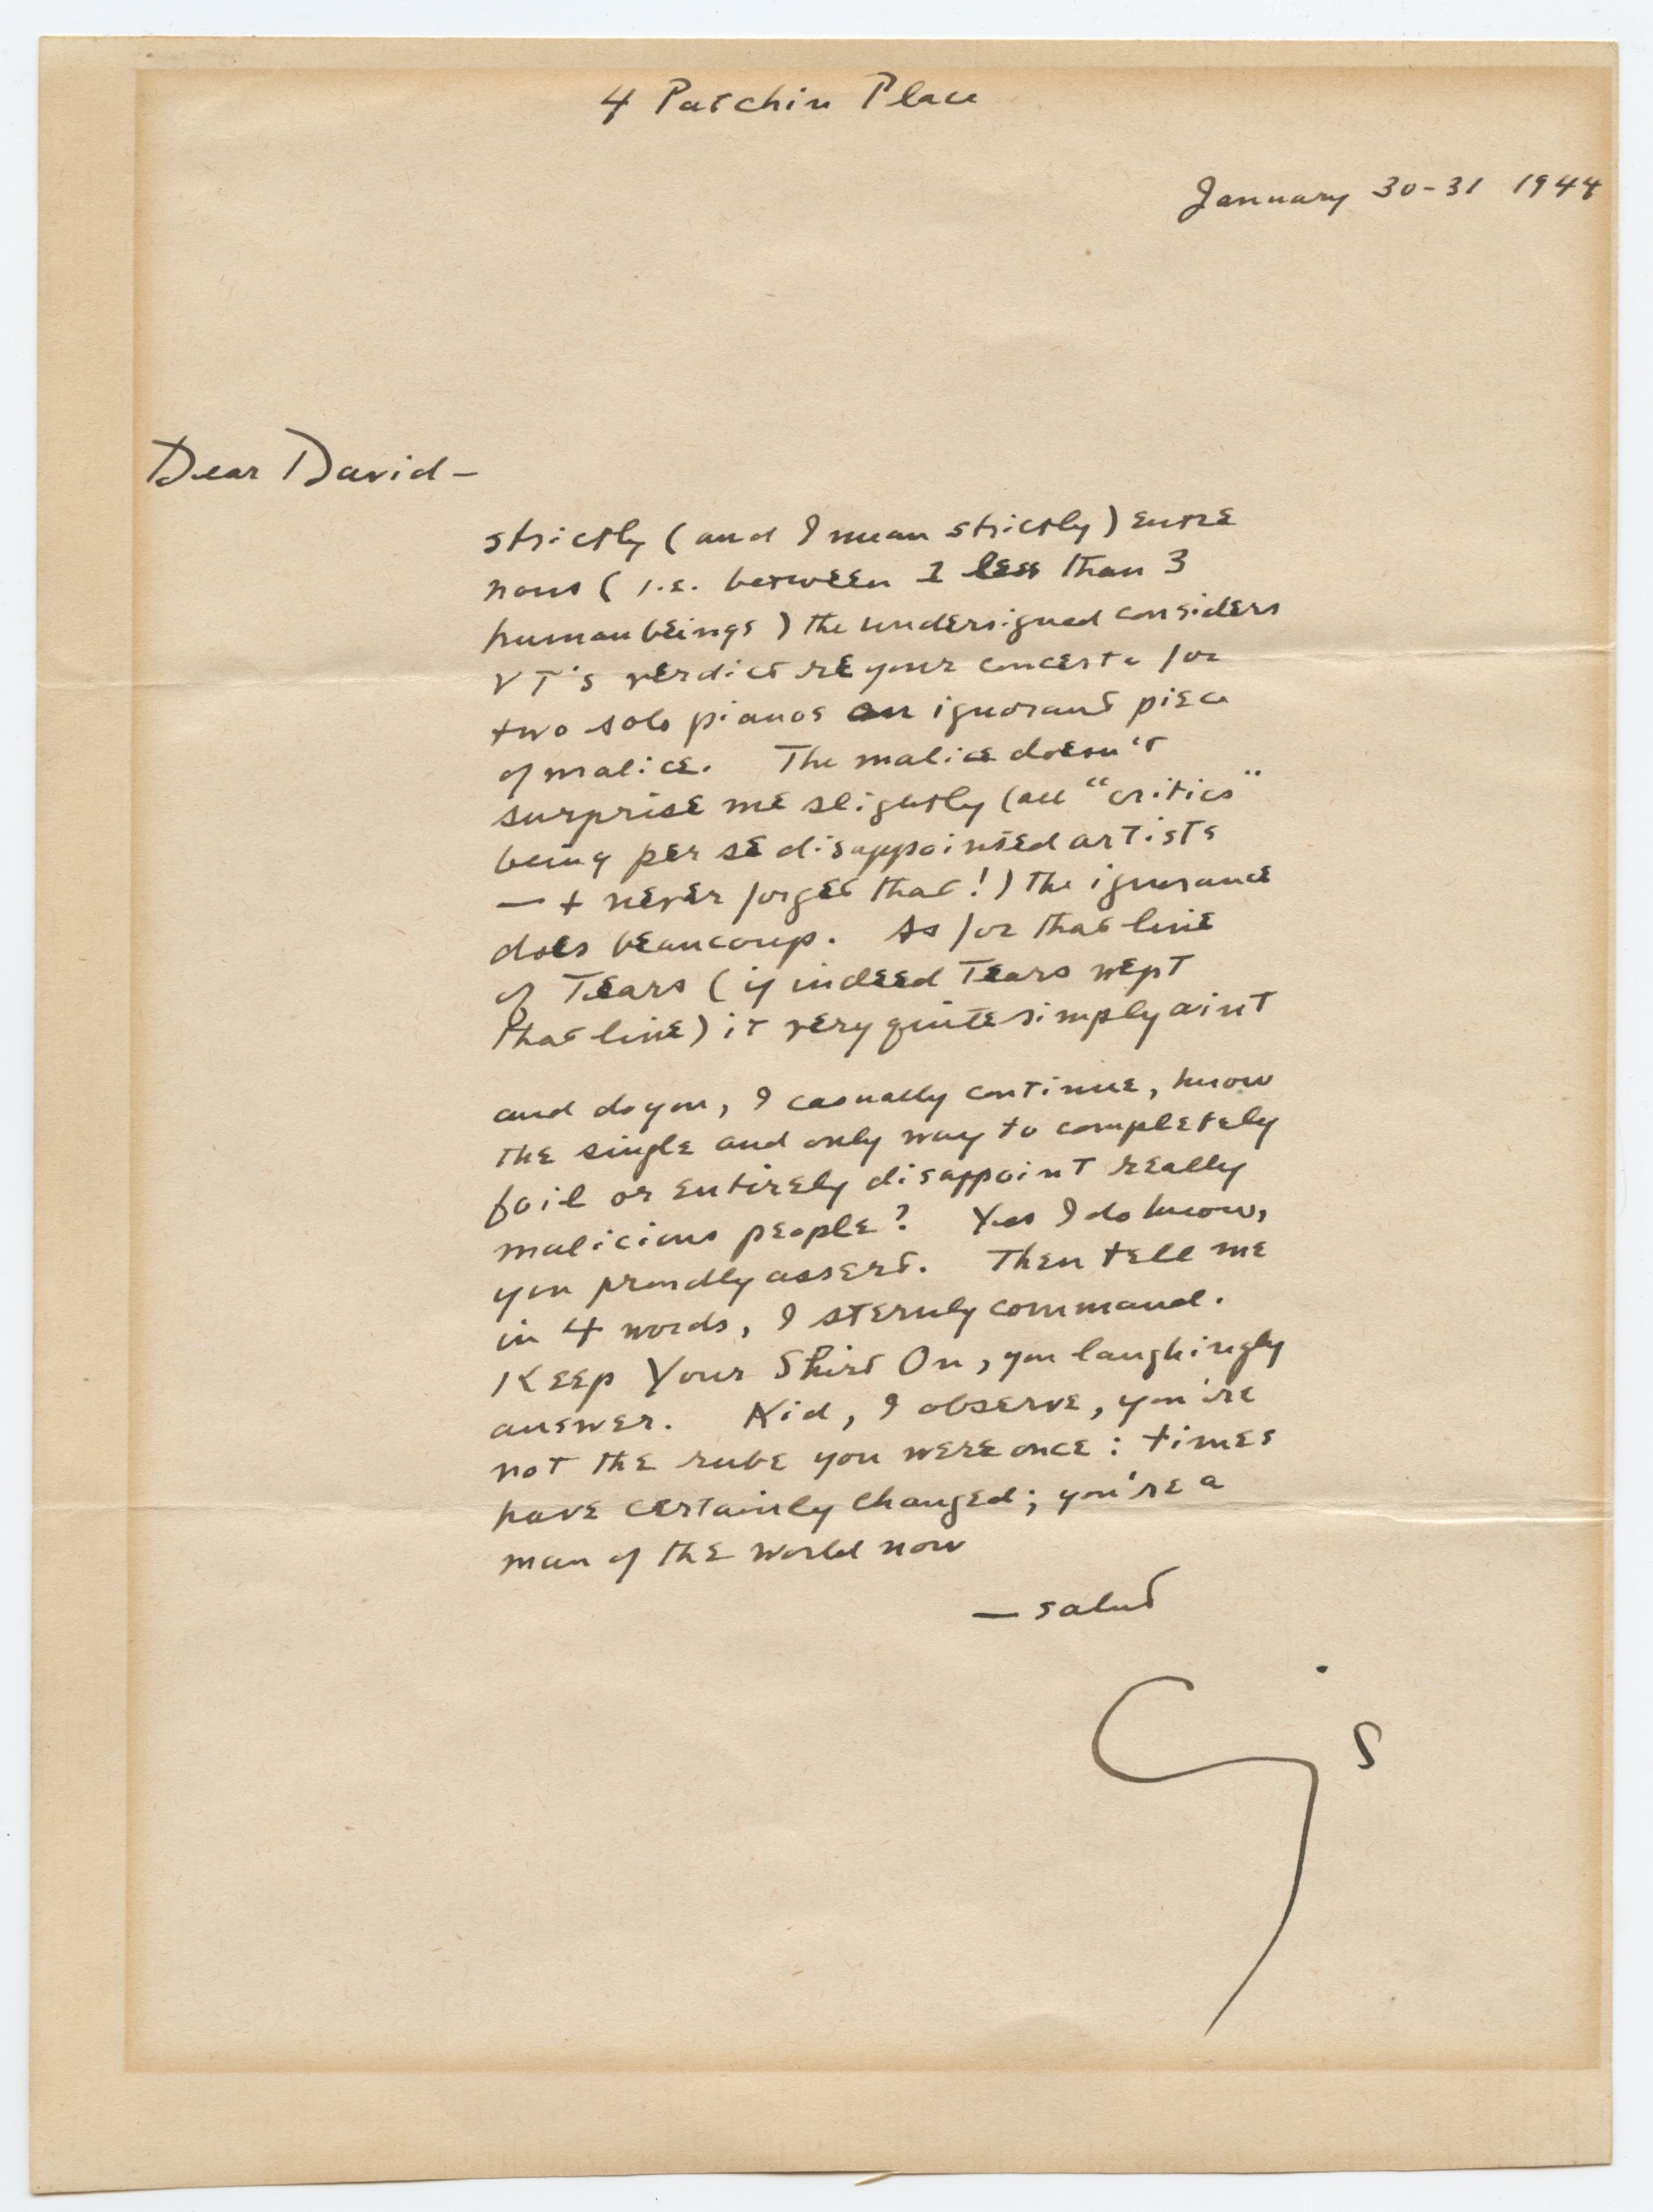 4 Patchin Place
January 30-31 1944
Dear David—
strictly (and I mean strictly) entre
nous (i.e. between 1 less than 3
humanbeings) the undersigned considers
VT's verdict re your concerto for
two solo pianos an ignorant piece
of malice. The malice doesn't
surprise me slightly (all "critics"
being per se disappointed artists
—+ never forget that!) the ignorance
does beaucoup. As for that line
of Tears (if indeed Tears wept
that line) it very quite simply aint
and do you, I casually continue, know
the single and only way to completely
foil or entirely disappoint really
malicious people? Yes I do know,
you proudly assert. Then tell me
in 4 words, I sternly command.
Keep Your Shirt On, you laughingly
answer. Kid, I observe, you're
not the rube you were once: times
have certainly changed; you're a
man of the world now
—salut